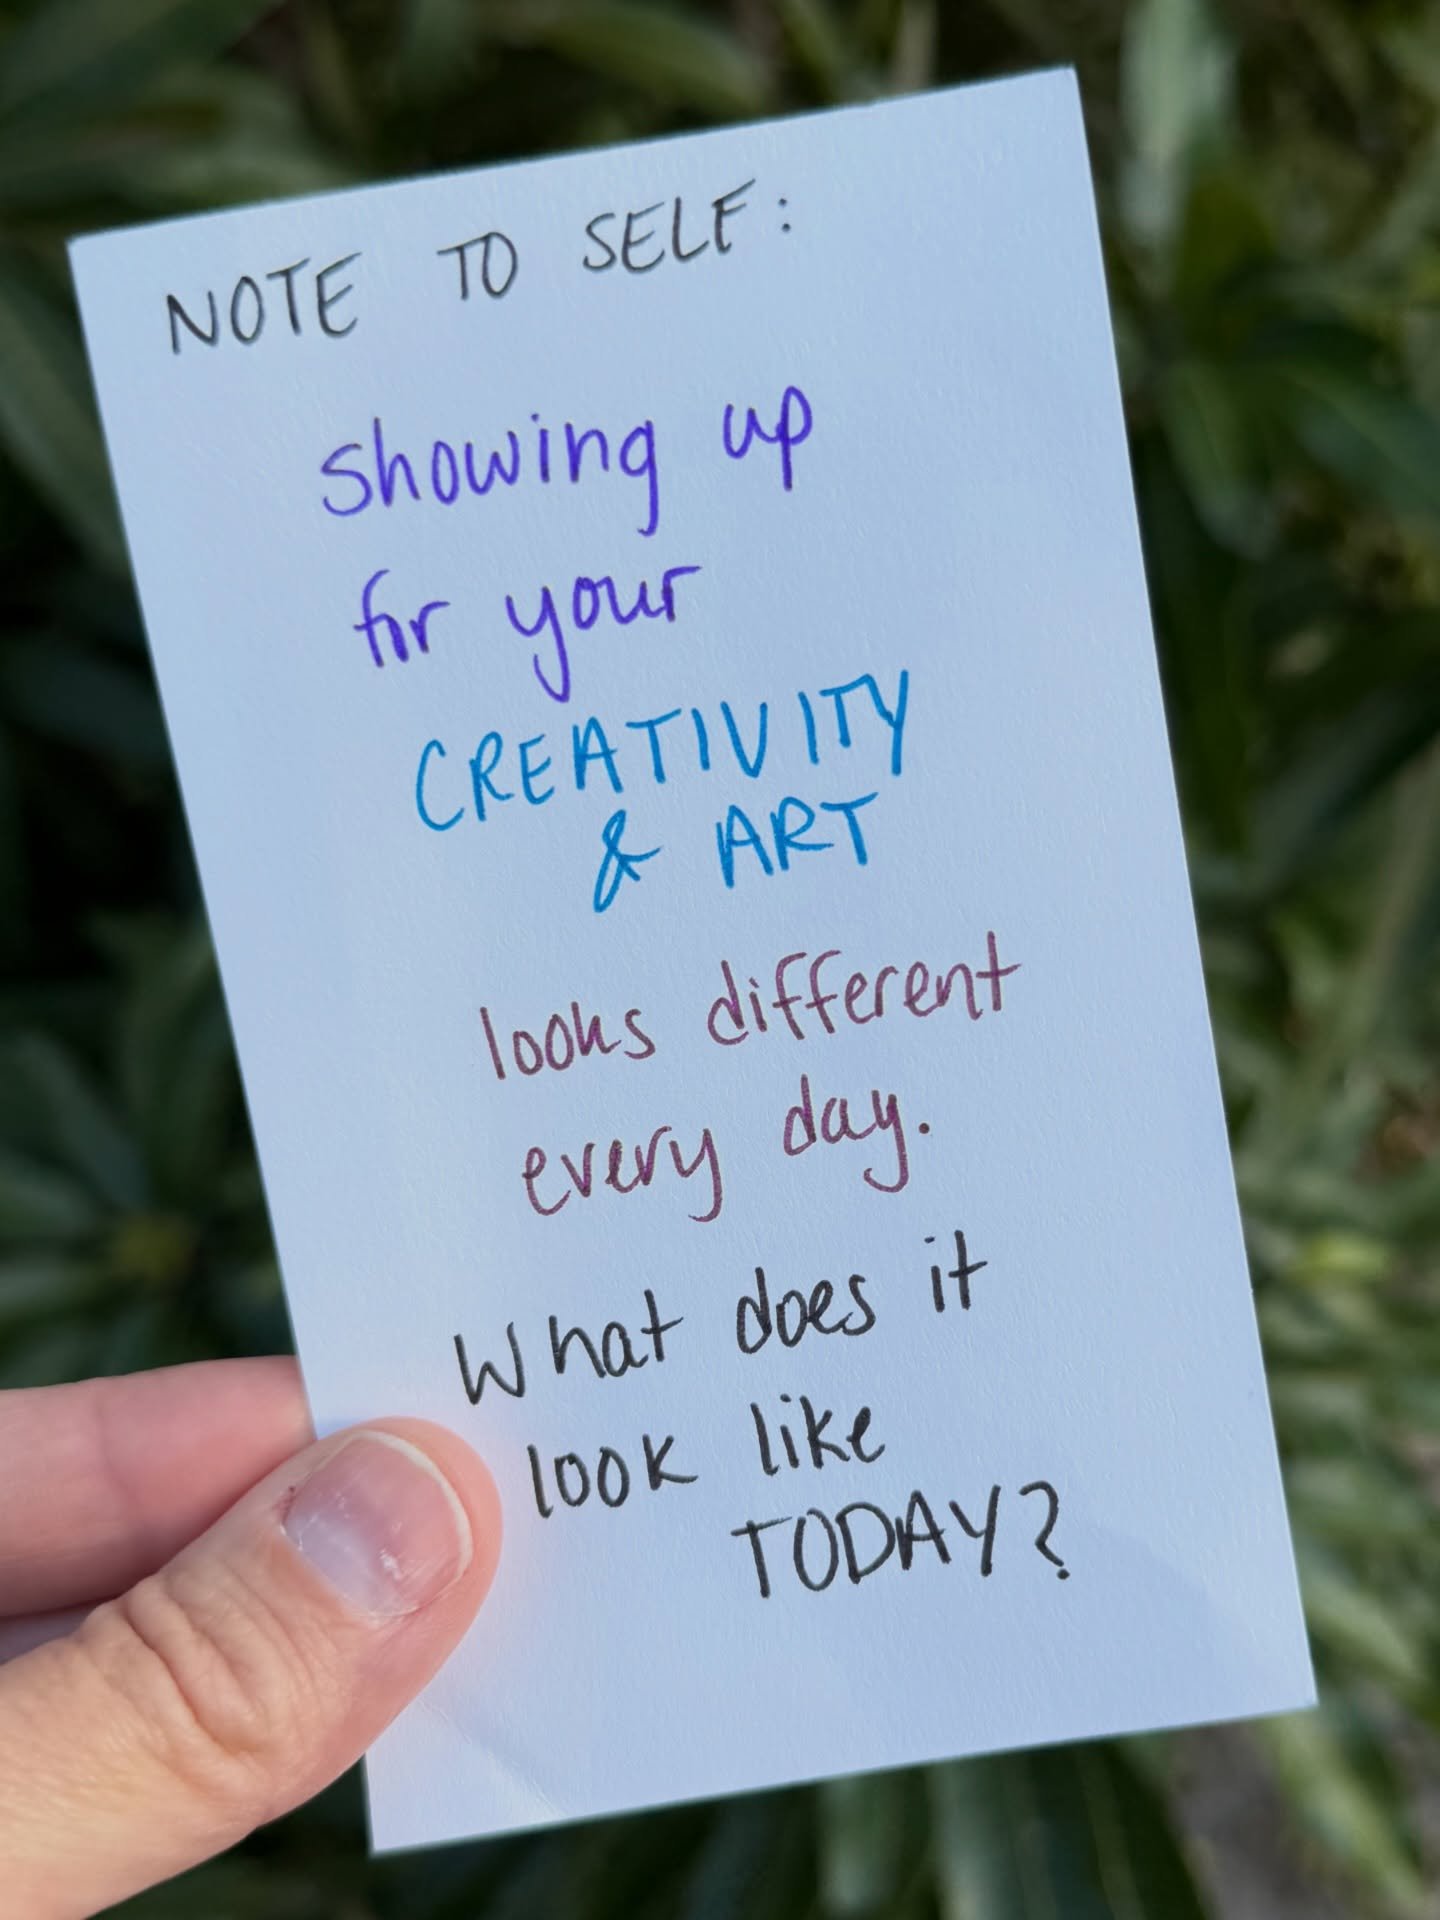 NOTE TO SELF:
showing up
for your
CREATIVITY
& ART
looks different
every day.
What does it
look like
TODAY?